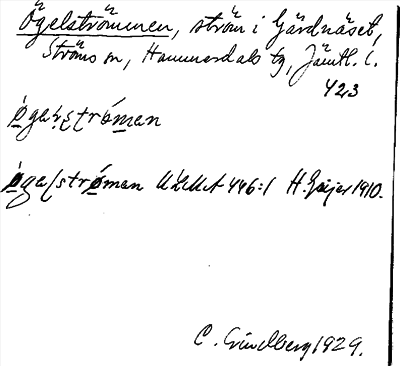 Ögelströmmen, ström i Gärdnäset,
Ströms sn, Hammerdals tg, Jämtl. l.
423
ø̀gaḷʂtrǿman
ø̀galstrǿman ULMA 446:1 H. Geijer 1910.
C. Grundberg 1929.